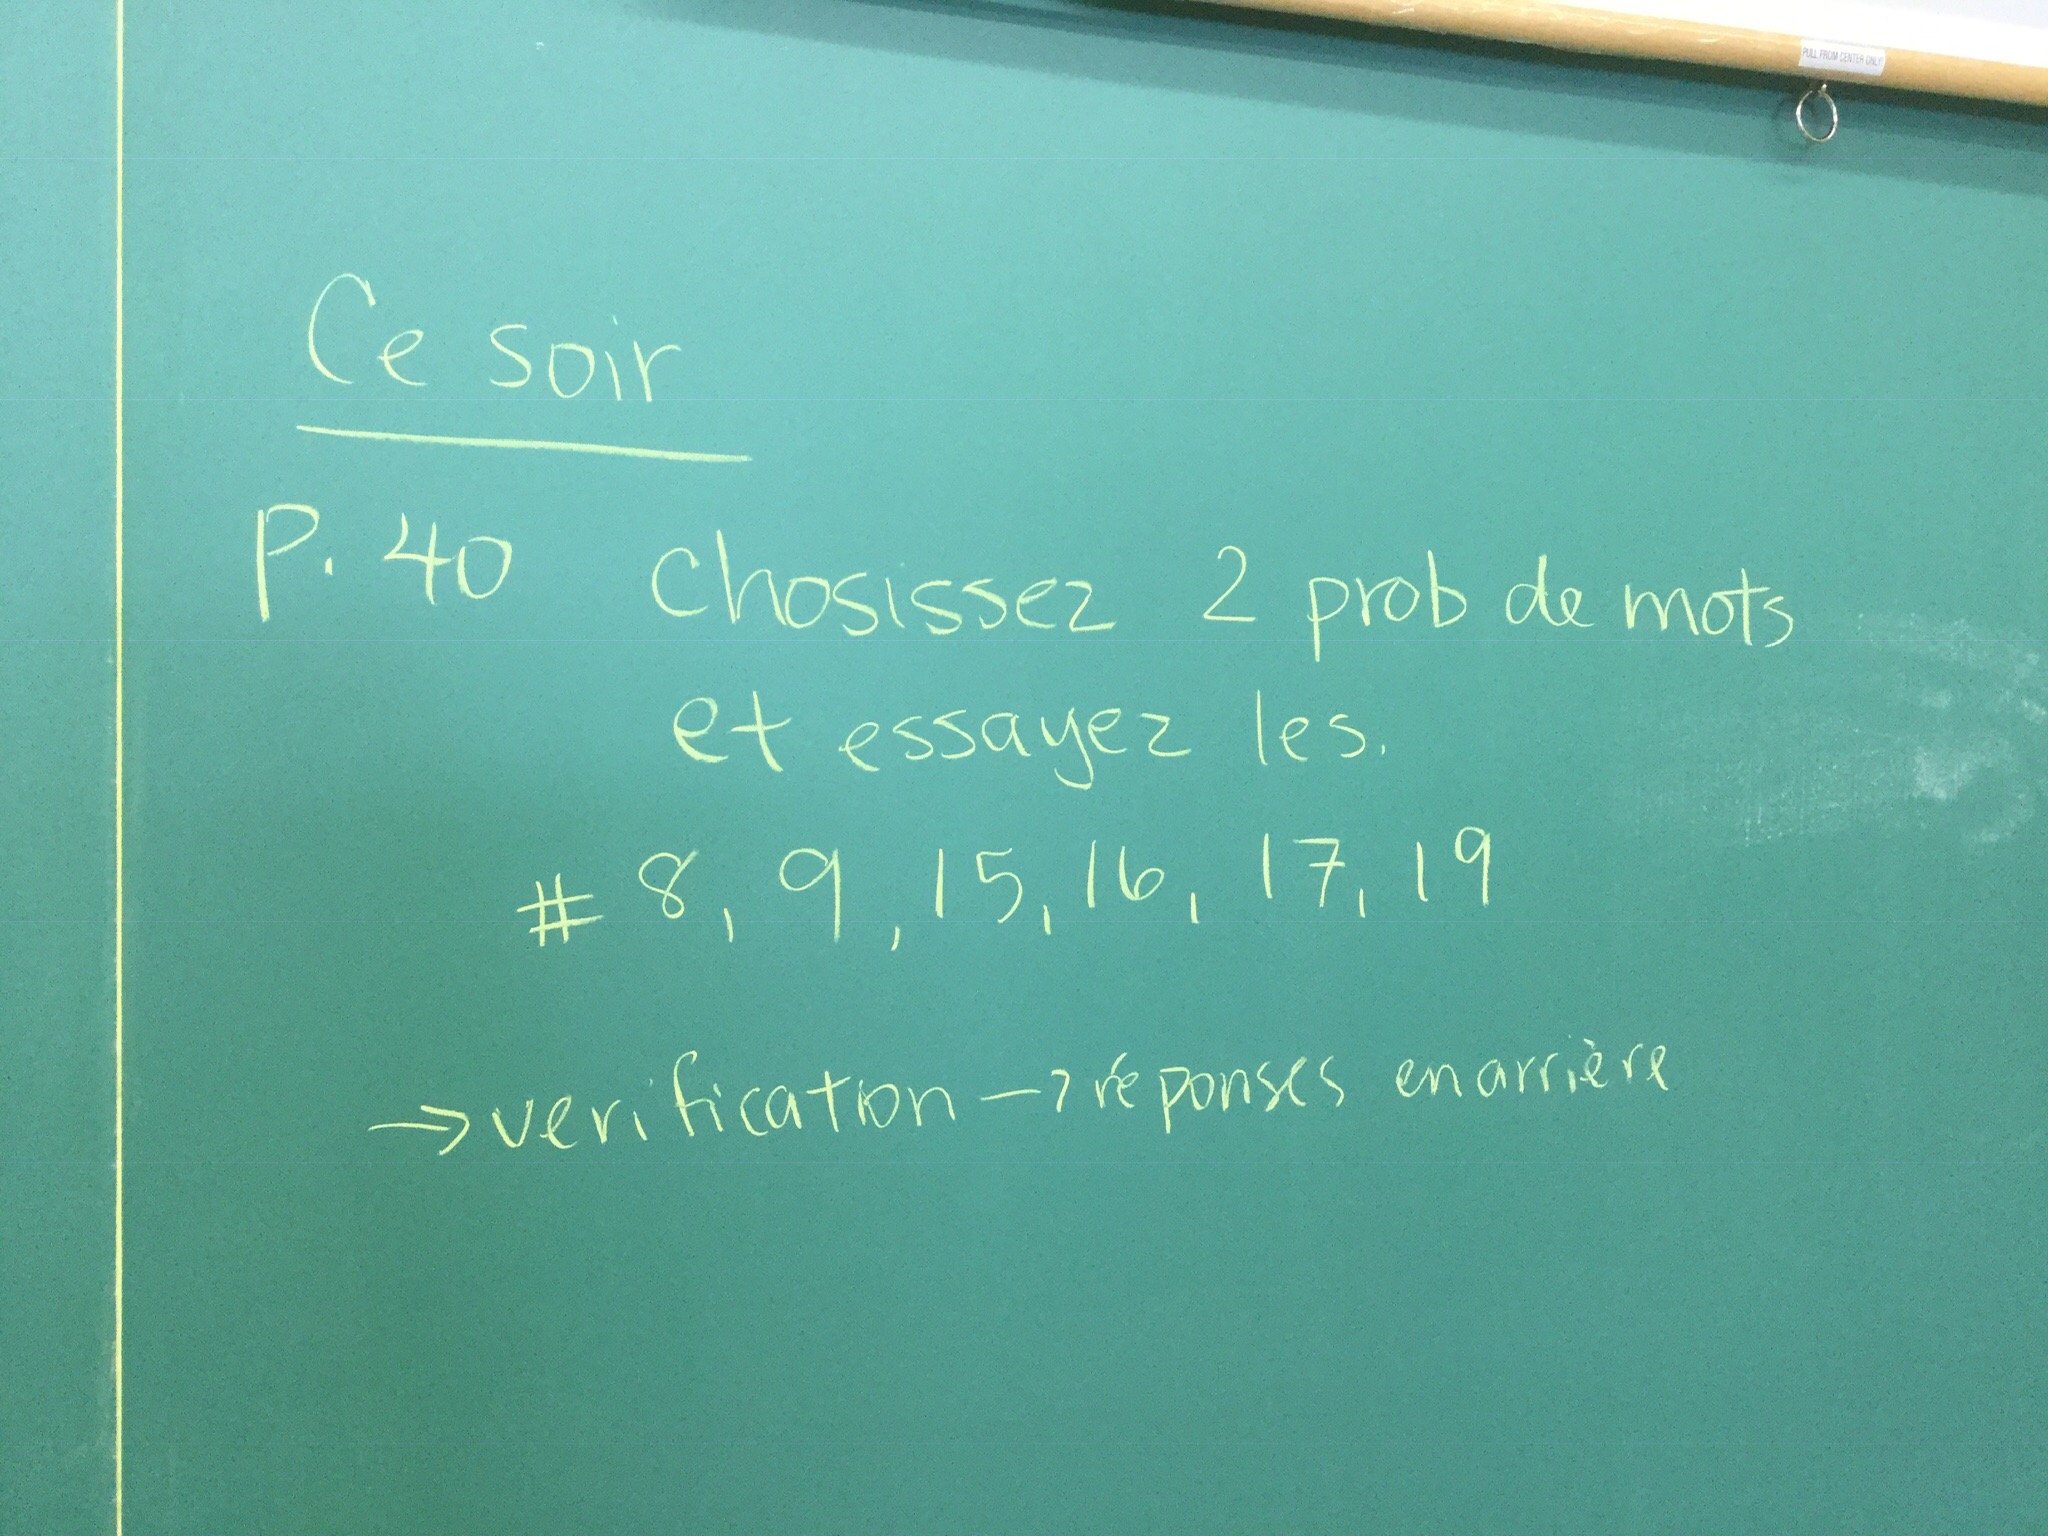 PULL FROM CENTER ONLY
Ce soir
P. 40 Chosissez 2 prob de mots
et essayez les.
# 8, 9, 15, 16, 17, 19
→ verification → réponses en arrière